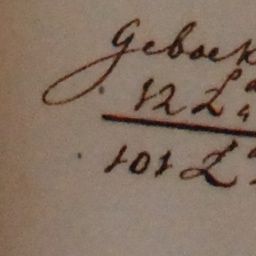 Geboek
12 L
101 L